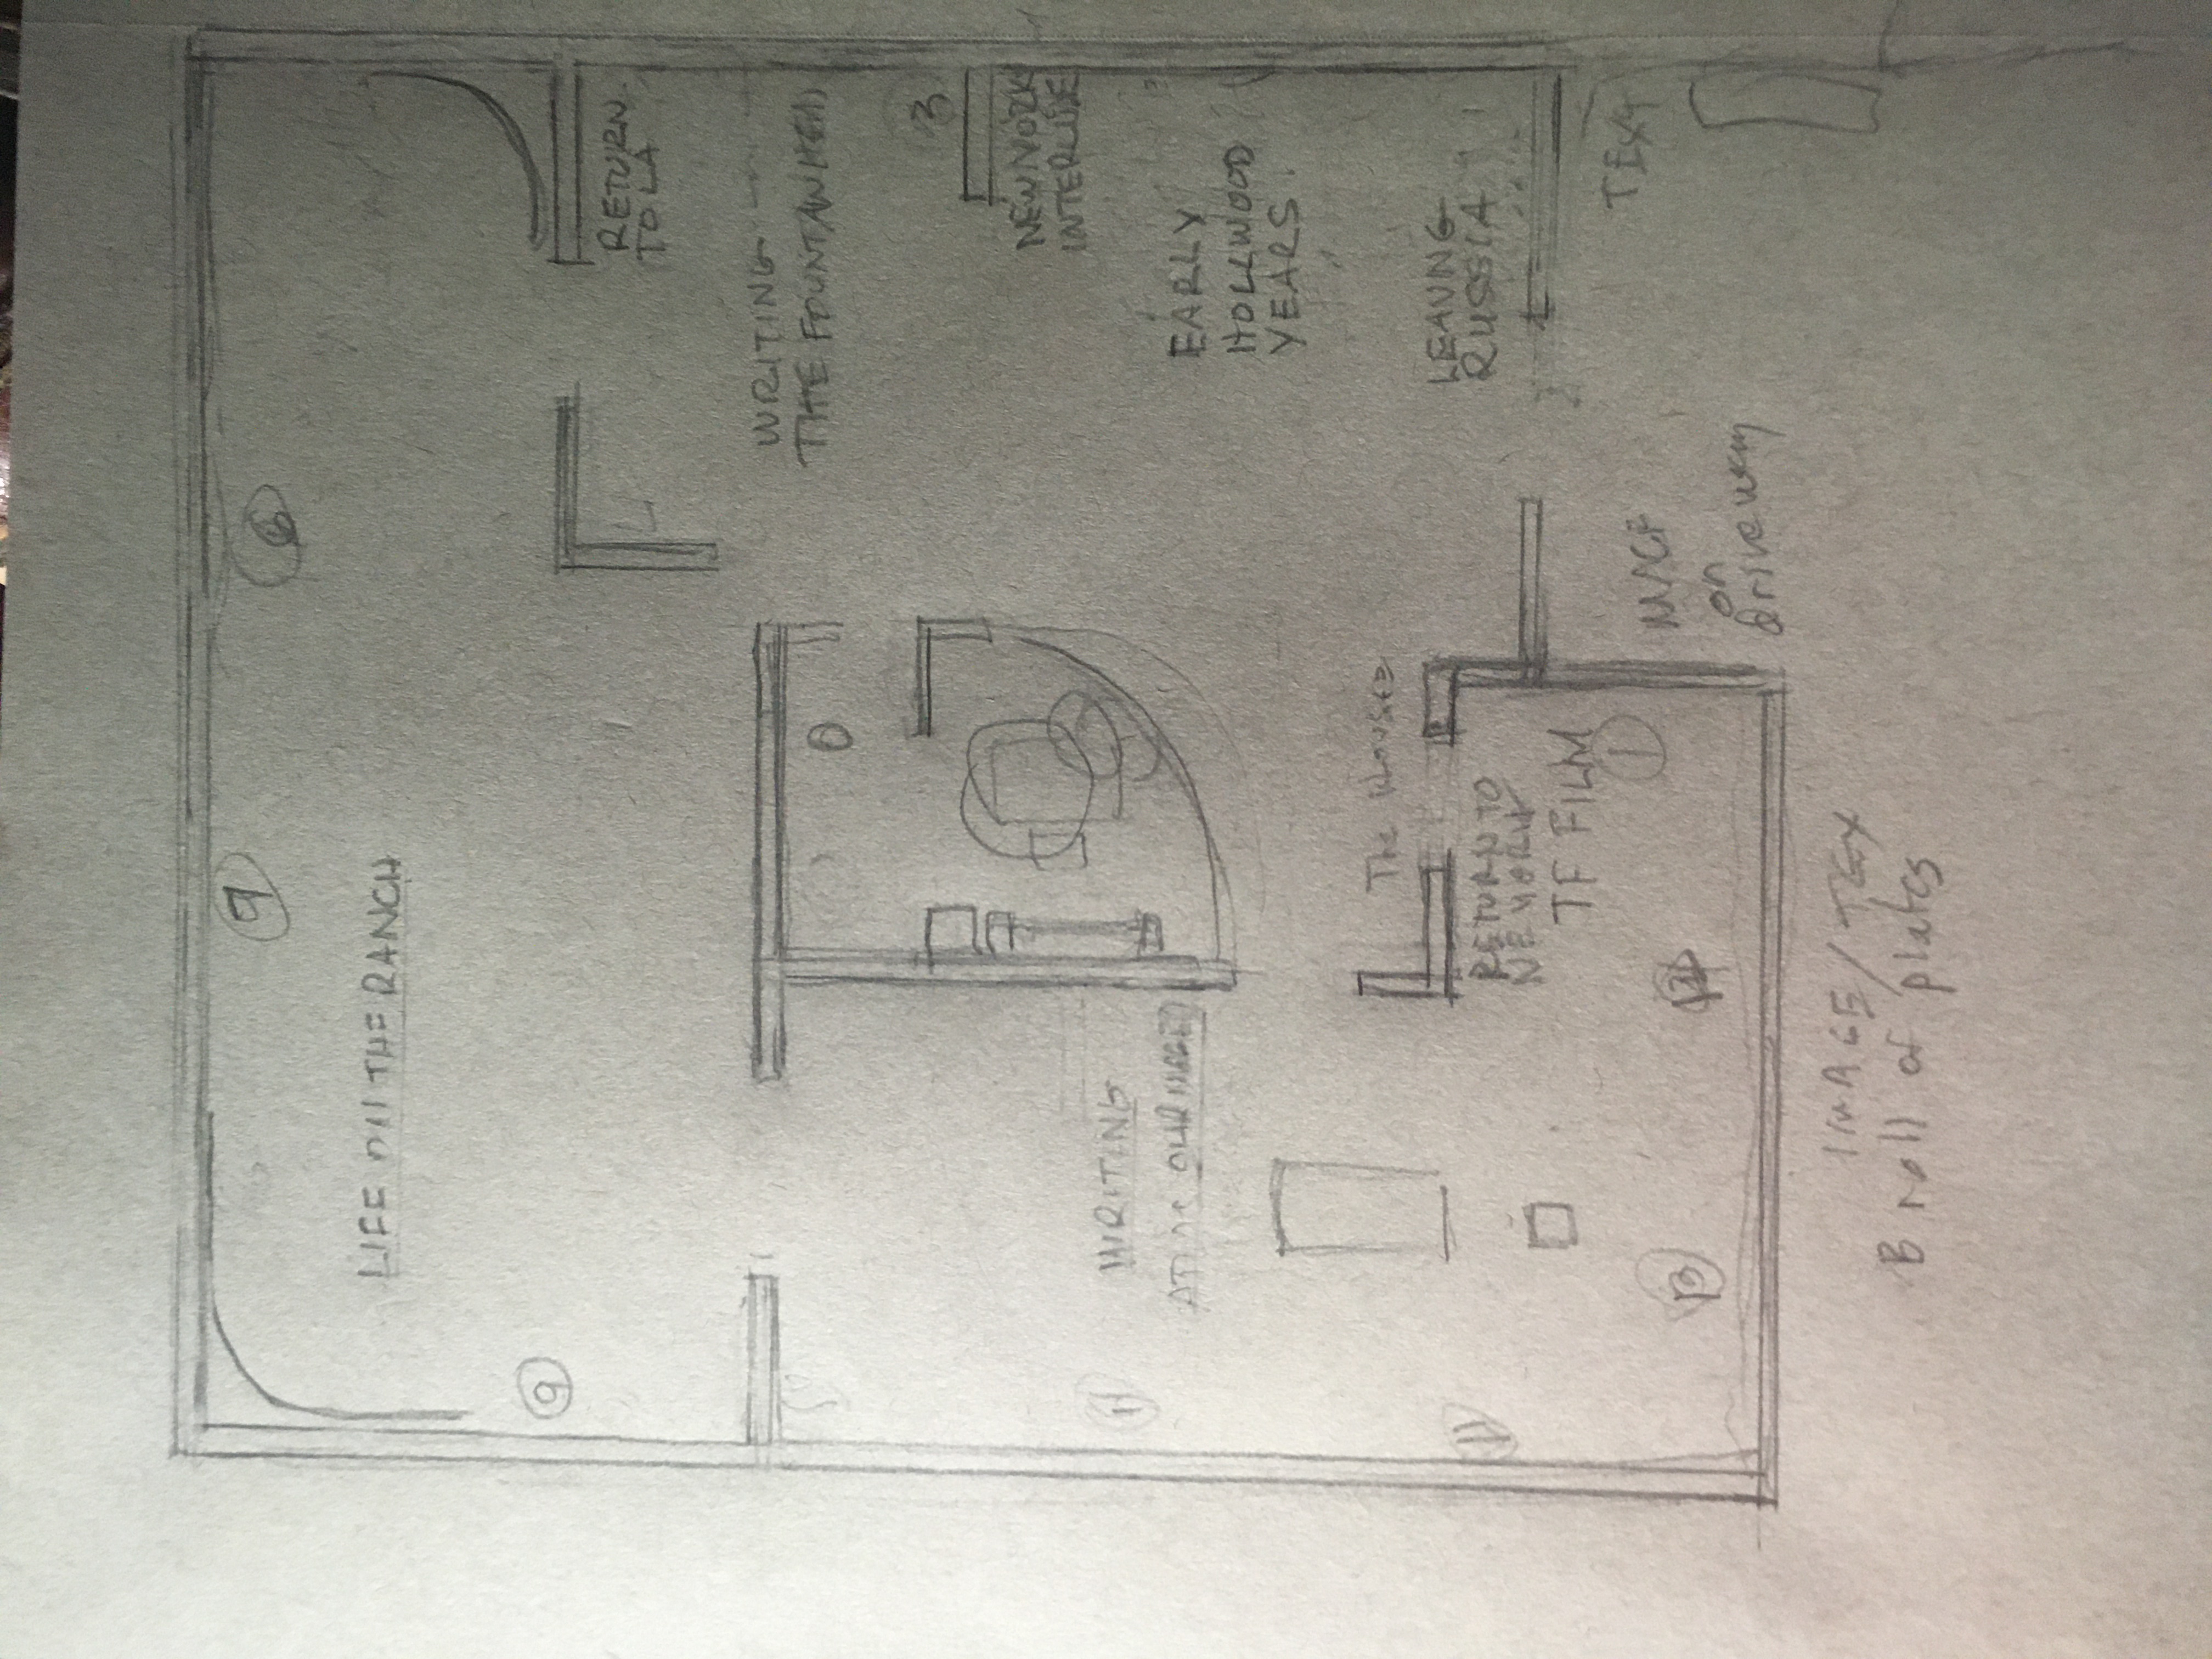 9
6
LIFE ON THE RANCH
9
RETURN
TO LA
WRITING
THE FOUNTAINHEAD
0
3
NEW YORK
INTERLUDE
11
WRITING
EARLY
HOLLWOOD
YEARS.
The House
LEAVING
RUSSIA
11
RETURN TO
NEW YORK
TF FILM
1
TEXT
13
on
driveway
IMAGE/TEX
B roll of plates